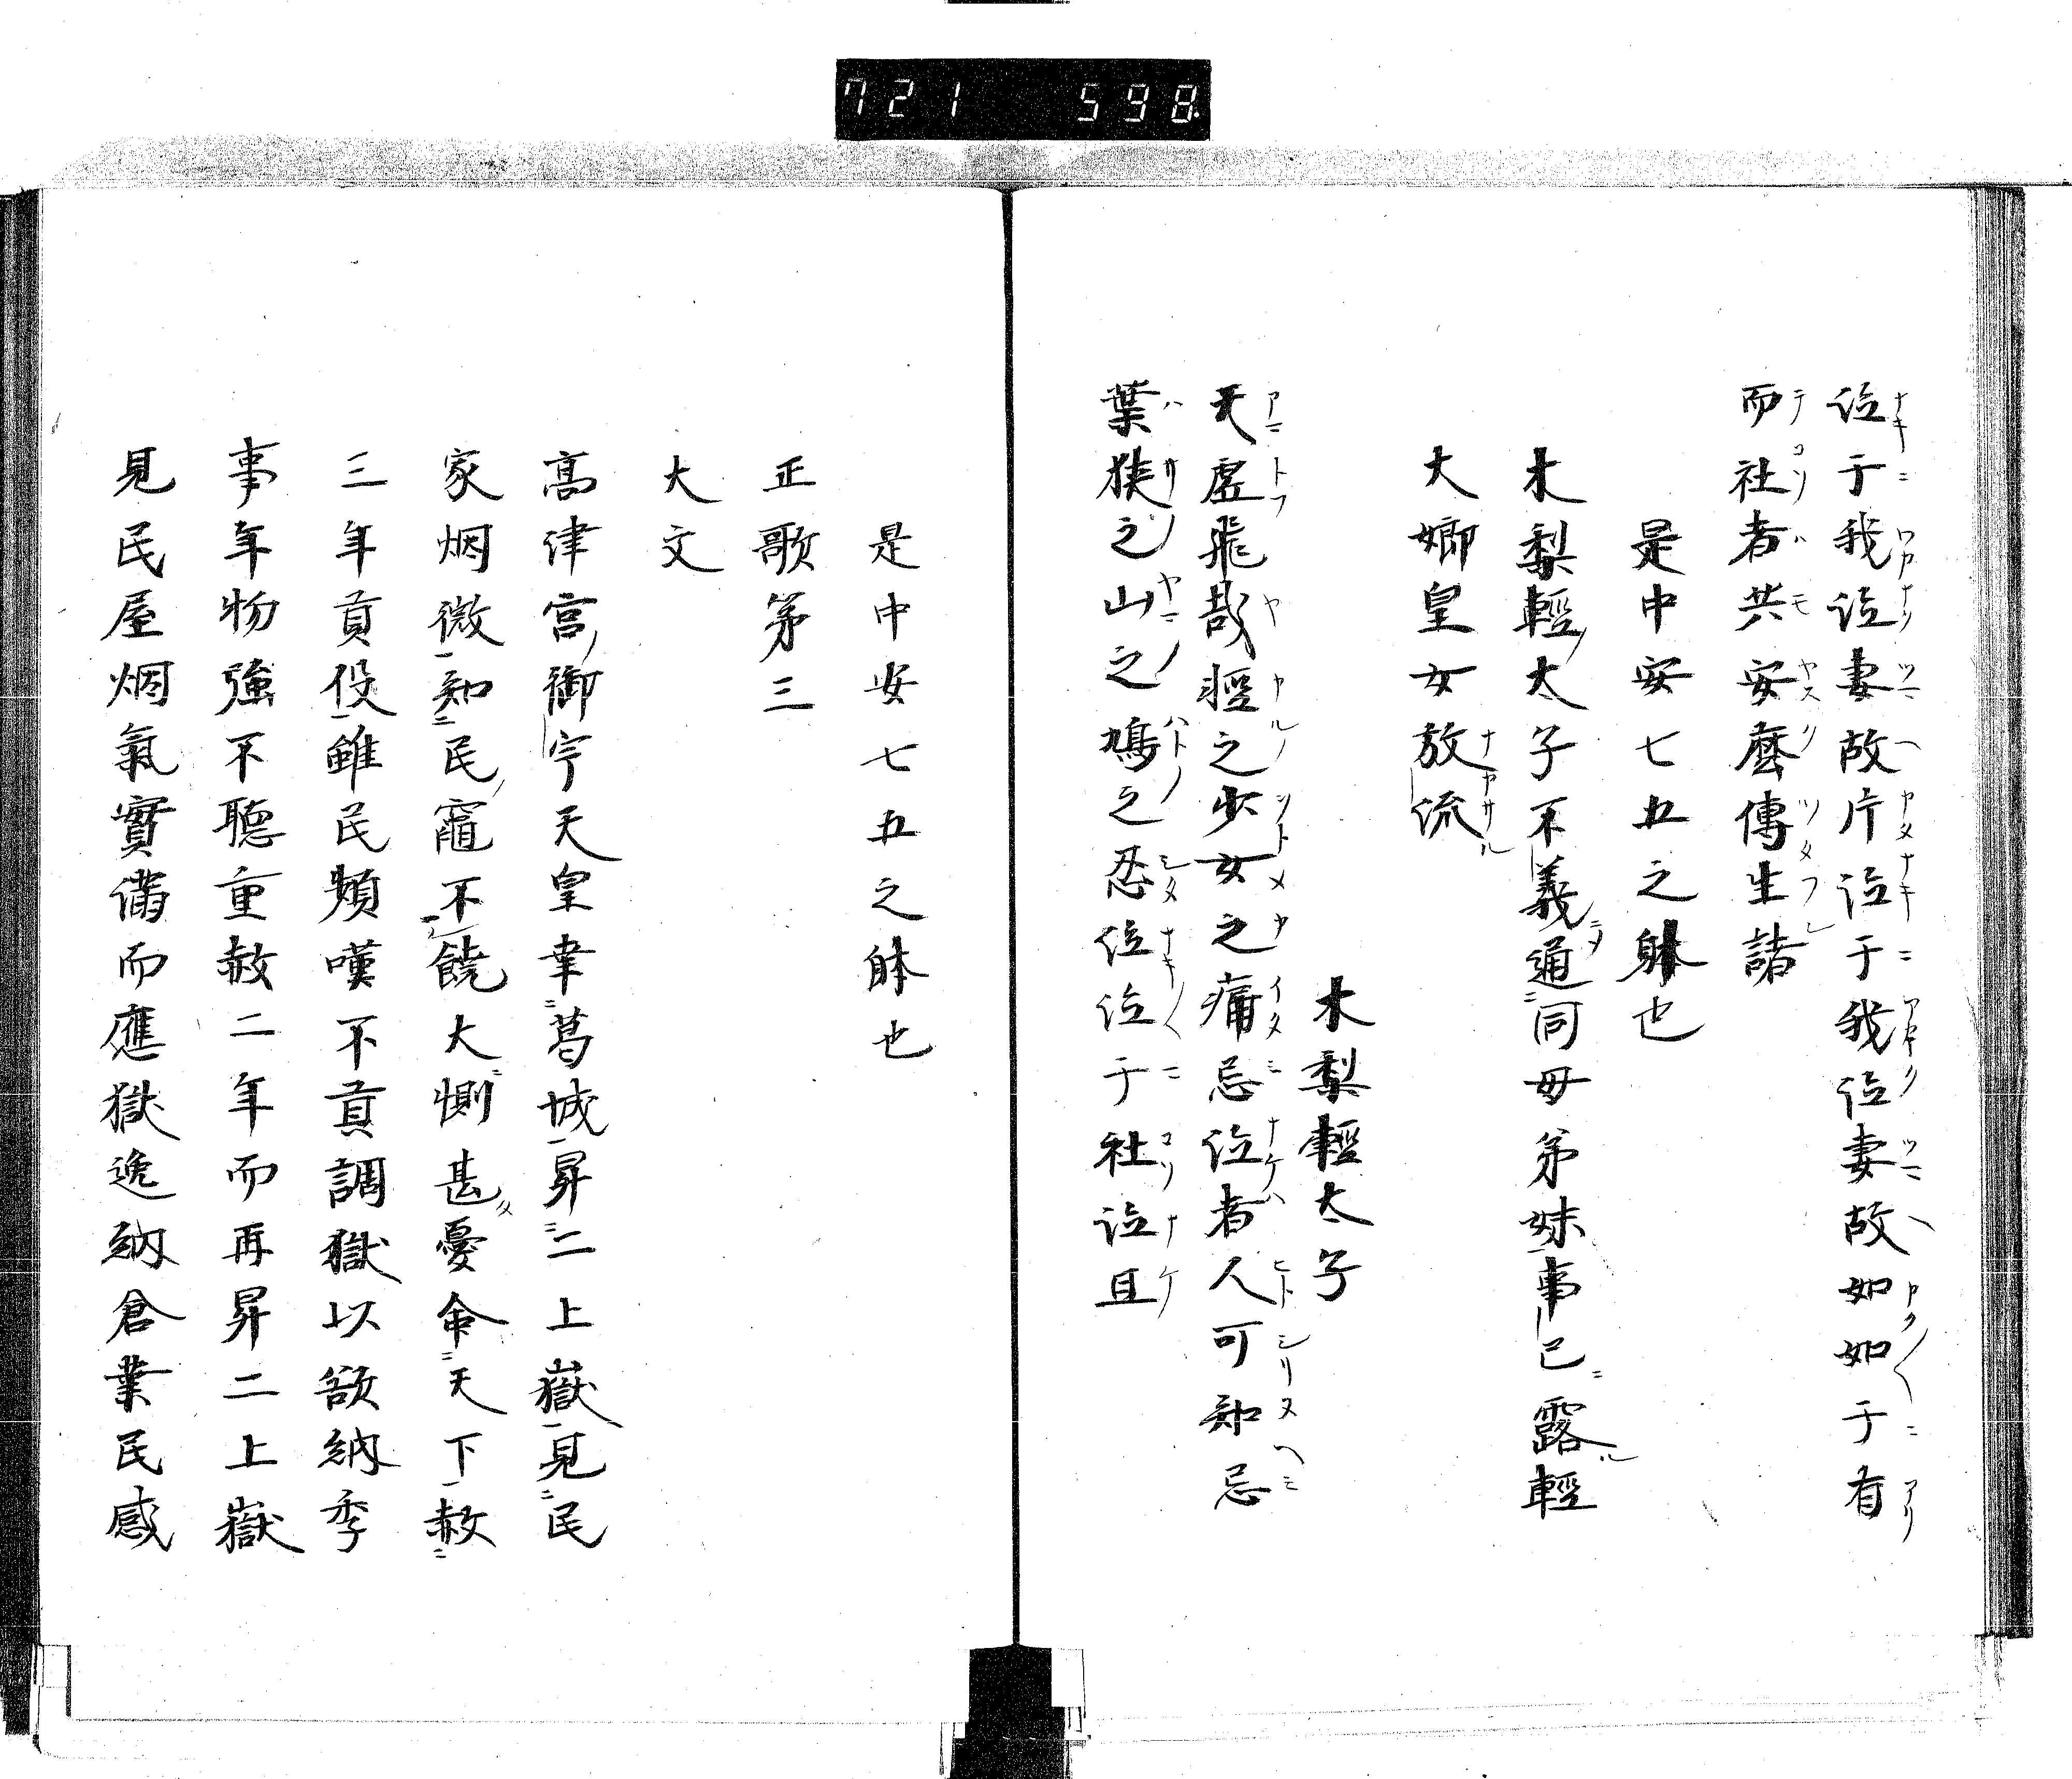 721 598
泣于我泣妻故片泣于我泣妻故如如于有
而社者共安麼傳生諸
是中安七五之躰也
木梨輕太子不義通同母弟妹事已露輕
大娜皇女放流
木梨輕太子
天虚飛哉輕之少女之痛忌泣者人可知忌
葉狭之山之鳩之忍位泣于社泣且
是中安七五之躰也
正歌第三
大文
高津宮御宇天皇幸葛城昇二上嶽見民
家烟微知民竈不饒大惻甚憂命天下赦
三年貢役雖民頻嘆不貢調獄以欲納季
事年物強不聴重赦二年而再昇二上嶽
見民屋烟氣實滿而應獄逸納倉業民感